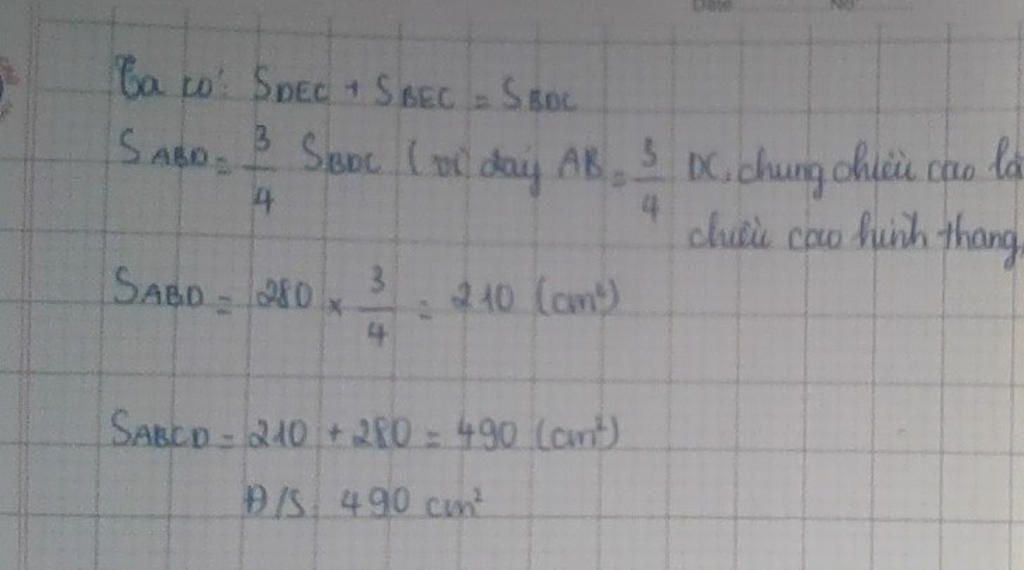 Date No
Ta có: SDEC + SBEC = SBDC
SABD = 3/4 SBDC (vì đáy AB = 3/4 DC, chung chiều cao là
chiều cao hình thang
SABD = 280 x 3/4 = 210 (cm²)
SABCD = 210 + 280 = 490 (cm²)
Đ/S: 490 cm²